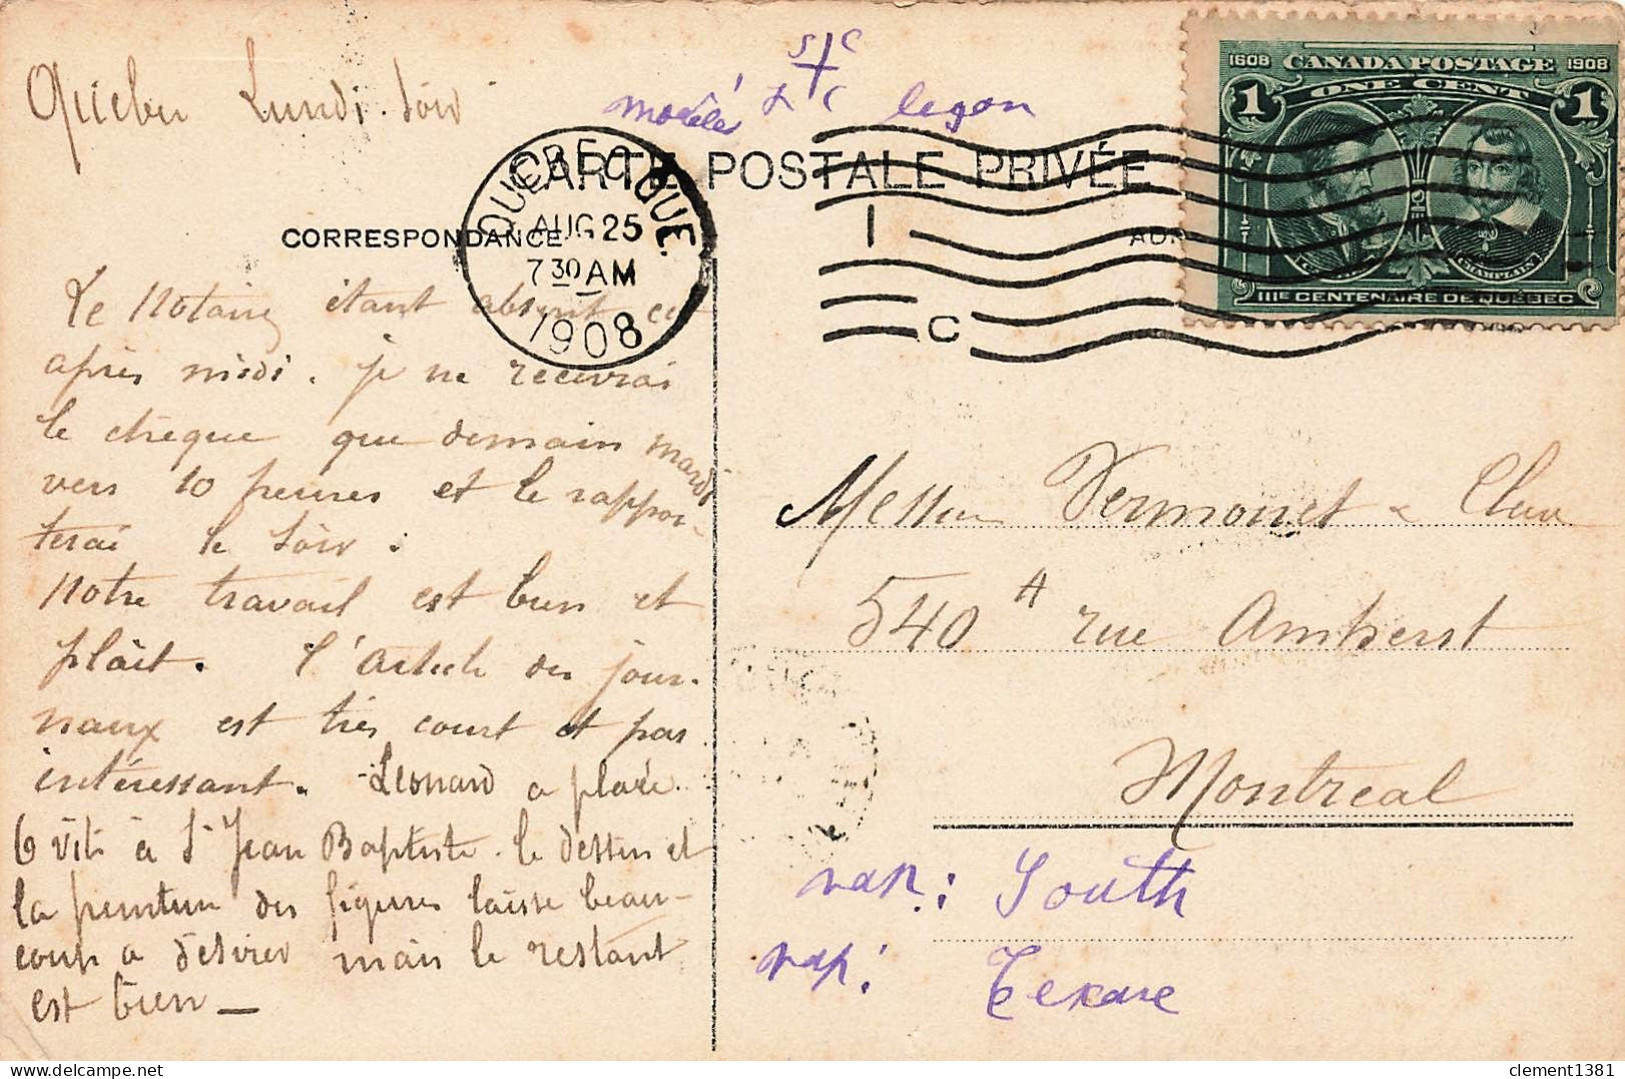 Québec Lundi Soir
S C
modèle L C leçon
CARTE POSTALE PRIVÉE
QUEBEC QUE.
AUG 25
7 30 AM
1908
C
1608 CANADA POSTAGE 1908
1 ONE CENT 1
CHAMPLAIN
IIIE CENTENAIRE DE QUEBEC
CORRESPONDANCE
Le Notaire étant absent cet
après midi. je ne recevrai
le chèque que demain mardi
vers 10 heures et le rappor-
terai le soir.
Notre travail est bien et
plait. l'Article des jour-
naux est très court et pas
intéressant. Leonard a placé
6 viti à St Jean Baptiste. le dessin et
la peinture des figures laisse beau-
coup a désirer mais le restant
est bien —
Messieurs Vermonet &
540 A rue Amherst
Montreal
rap.: South
rap:
clement1381